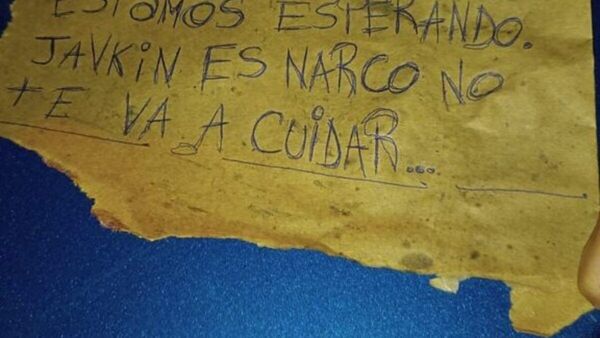 ESTAMOS ESPERANDO.
JAVKiN ES NARCO NO
+E VA A CUiDAR...